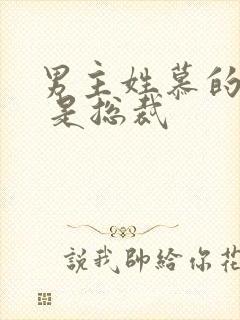 男主姓慕的
是总裁
說我帥給你花